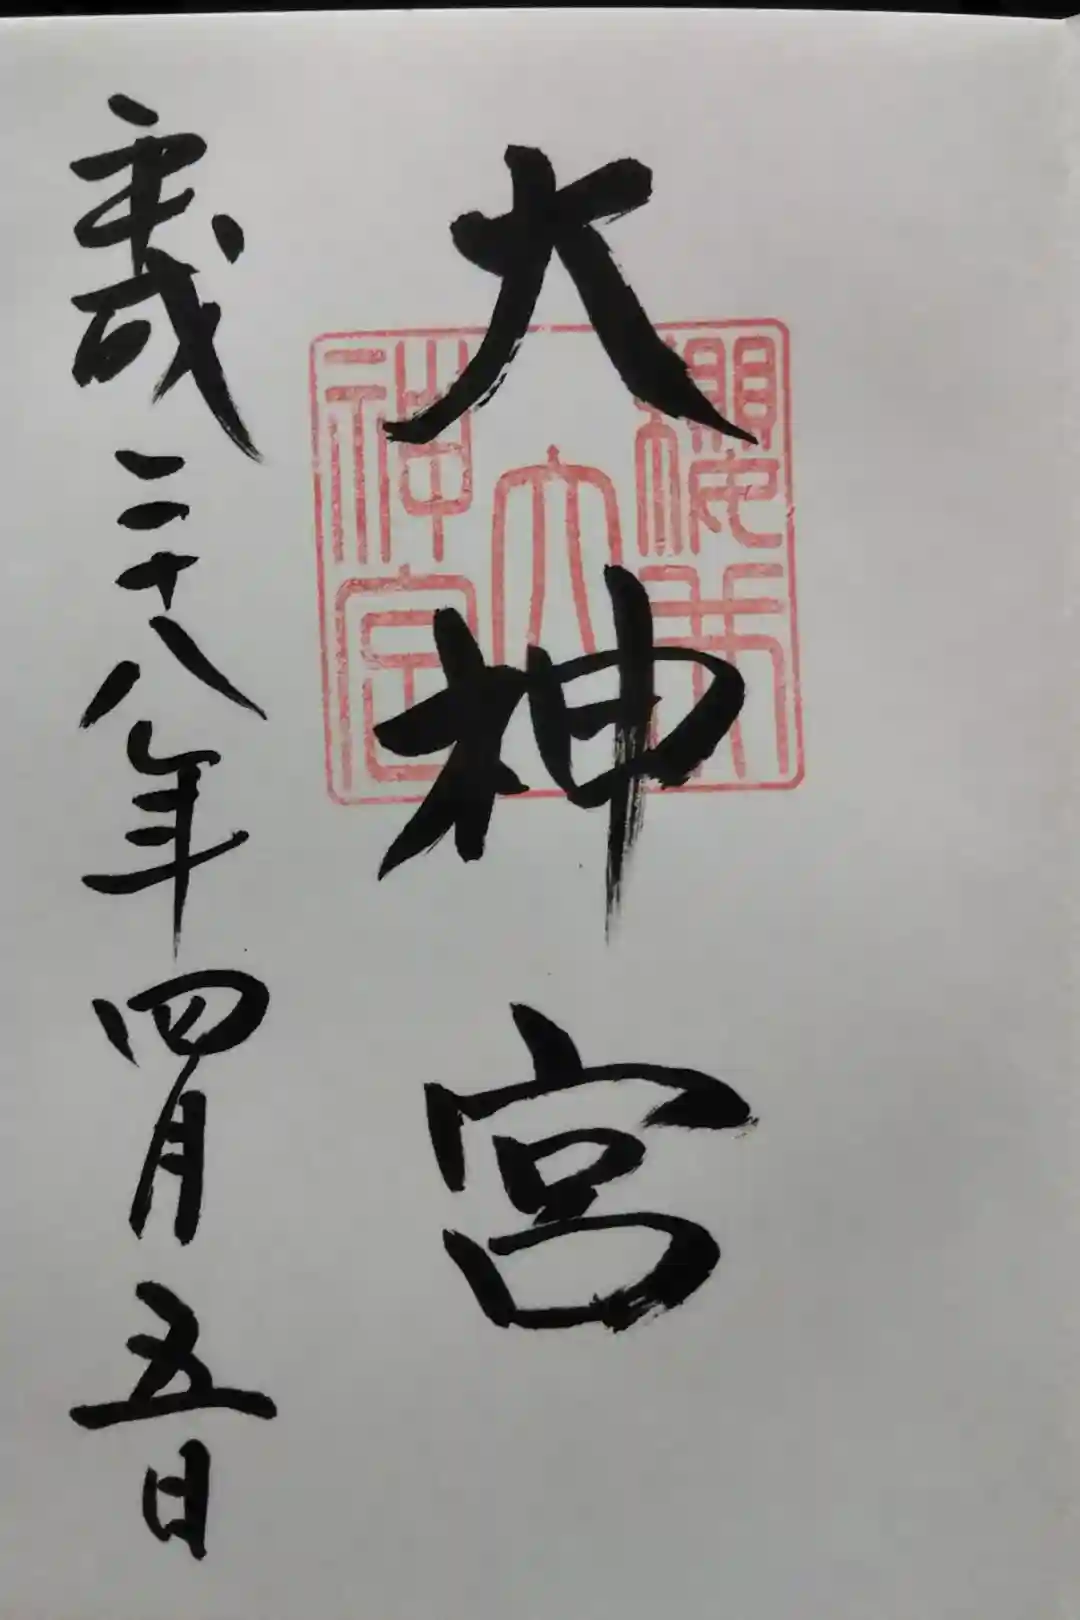 大神宮
櫻
大
神宮
平成二十八年四月五日